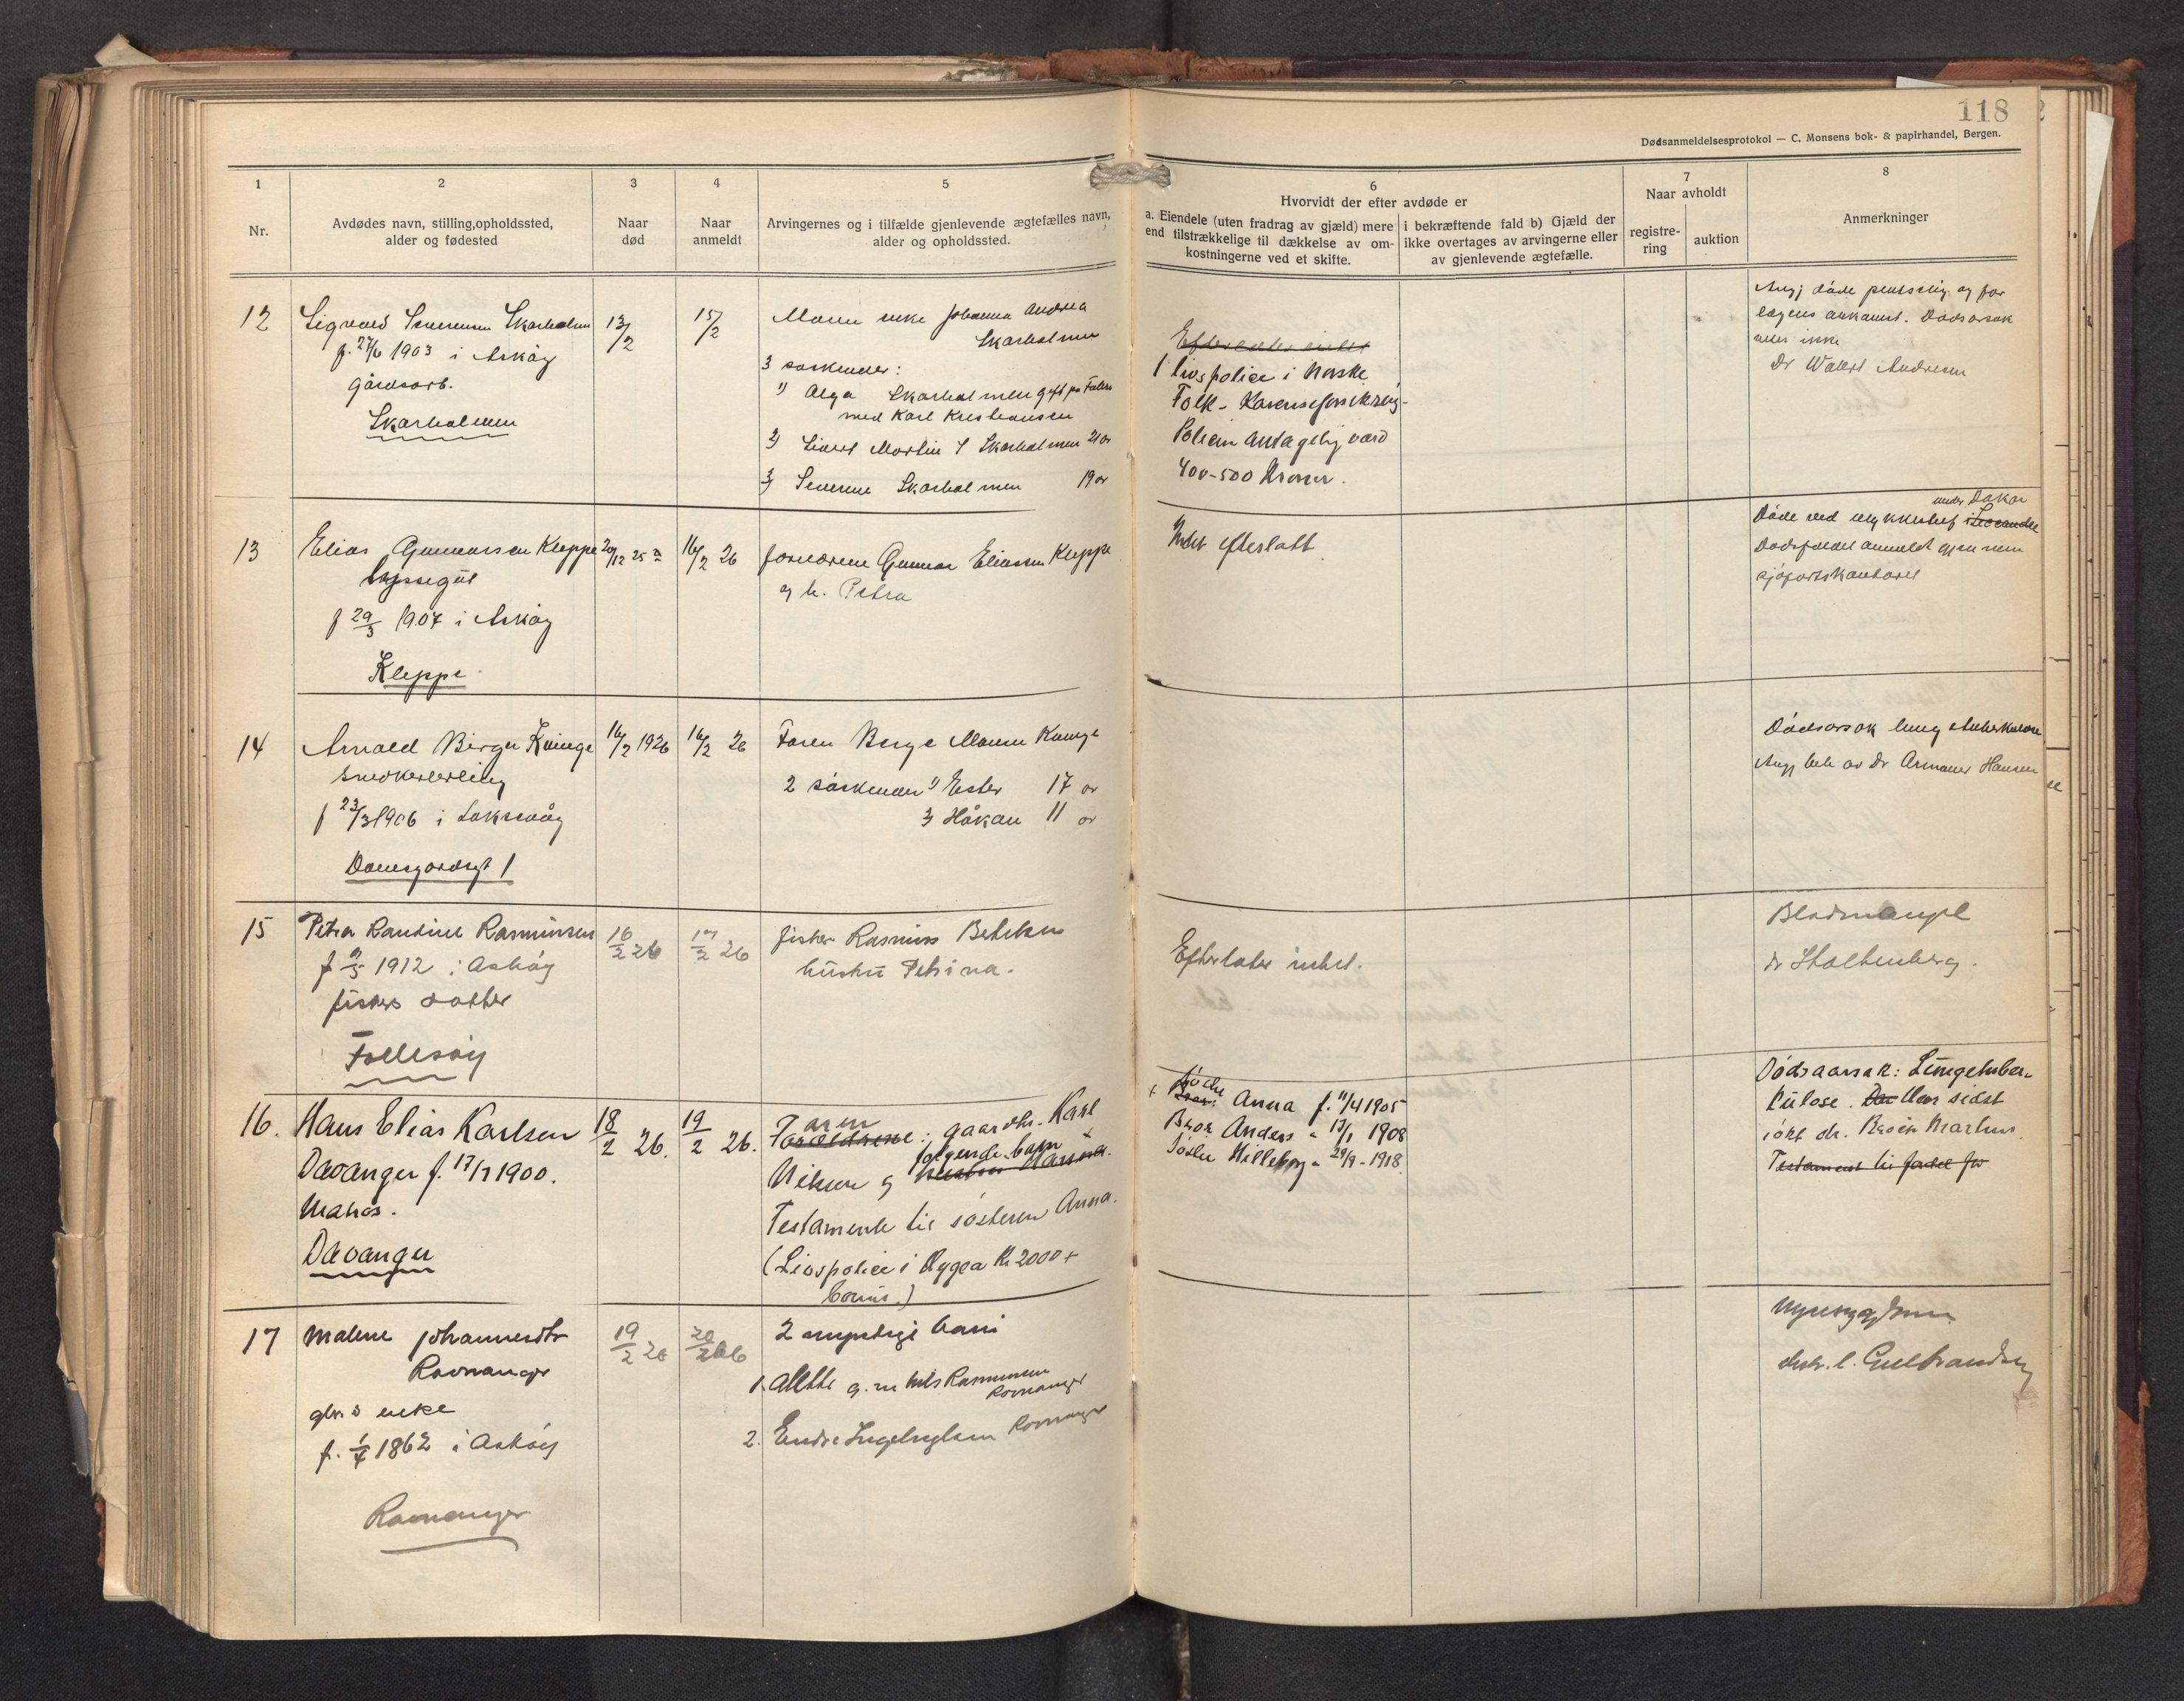 118
Dødsanmeldelsesprotokol — C. Monsens bok- & papirhandel, Bergen.
1
2
3
4
5
6
7
8
Nr.
Avdødes navn, stilling, opholdssted,
alder og fødested
Naar
død
Naar
anmeldt
Arvingernes og i tilfælde gjenlevende ægtefælles navn,
alder og opholdssted.
Hvorvidt der efter avdøde er
a. Eiendele (uten fradrag av gjæld) mere
end tilstrækkelige til dækkelse av om-
kostningerne ved et skifte.
i bekræftende fald b) Gjæld der
ikke overtages av arvingerne eller
av gjenlevende ægtefælle.
Naar avholdt
registre-
ring
auktion
Anmerkninger
12
Sigvald Severinsen Skarholmen
f. 27/6 1903 i Askøy
gårdsarb.
Skarholmen
13/2
15/2
Moren enke Johanna Andrea
Skarholmen
3 søskender:
1) Olga Skarholmen gift
med Karl Kristiansen
2) Sivert Martin S Skarholmen 21 år
3) Severine Skarholmen 19 år
Efterlater intet
1 livspolice i Norske
Folk-
Policen antagelig værd
400-500 Kroner.
Angj døde plutselig og før
lægens ankomst. Dødsårsak
ikke
Dr Andresen
13
Elias Gunnarsen Kleppe
byssegut
f 29/3 1907 i Askøy
Kleppe
20/12 25
16/2 26
forældrene Gunnar Eliassen Kleppe
og h. Petra
Intet efterlatt
under Dakar
Døde ved ulykkestilf
Dødsfaldet anmeldt gjennem
sjøfartskontoret
14
Arnold Birger Kvinge
Snedkerlærling
f 23/3 1906 i Laksevåg
Damsgårdsgt 1
16/2 1926
16/2 26
Faren Berge Monsen Kvinge
2 søskender 1) Ester 17 år
2) Håkon 11 år
Dødsorsak lungetuberkulose
Angj beh av Dr Armauer Hansen
15
Petra Randine Rasmussen
f 1912 i Askøy
fiskers datter
Follesøy
16/2 26
17/2 26
fisker Rasmus
hustru Petrina.
Efterlater intet.
Blodmangel
dr Stoltenberg.
16.
Hans Elias Karlsen
Davanger f. 17/7 1900.
Matros.
Davanger
18/2 26.
19/2 26.
Faren
Forældrene: gaardbr. Karl
Nilsen og følgende barn +
Testamente til søsteren Anna.
(Livspolice i Hygea Kr 2000 +
bonus.)
+ Søster Anna f. 11/4 1905
Bror Anders " 13/1 1908
Søster Hilleborg " 29/9 - 1918.
Dødsaarsak: Lungetuber-
kulose. Har sidst
søkt dr. Martens.
Testament til fordel for
17
Malene Johannesdtr
Ravnanger
gbr.s enke
f. 1/4 1862 i Askøy
Ravnanger
19/2 26
20/2 26
2 myndige barn
1. Alette g. m Nils Rasmussen
Ravnanger
2. Endre Ingebrigtsen Ravnanger
Nyresygdom
Gulbrandsen